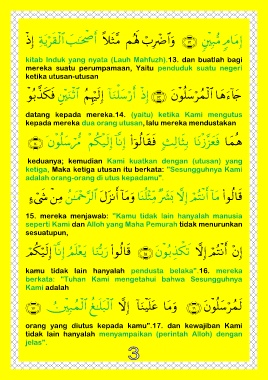 إِمَامٍ مُّبِينٍ ۝ وَٱضْرِبْ لَهُم مَّثَلًا أَصْحَٰبَ ٱلْقَرْيَةِ إِذْ
kitab Induk yang nyata (Lauh Mahfuzh).13. dan buatlah bagi
mereka suatu perumpamaan, Yaitu penduduk suatu negeri
ketika utusan-utusan
جَآءَهَا ٱلْمُرْسَلُونَ ۝ إِذْ أَرْسَلْنَآ إِلَيْهِمُ ٱثْنَيْنِ فَكَذَّبُو
datang kepada mereka.14. (yaitu) ketika Kami mengutus
kepada mereka dua orang utusan, lalu mereka mendustakan
هُمَا فَعَزَّزْنَا بِثَالِثٍ فَقَالُوٓا۟ إِنَّآ إِلَيْكُم مُّرْسَلُونَ ۝
keduanya; kemudian Kami kuatkan dengan (utusan) yang
ketiga, Maka ketiga utusan itu berkata: "Sesungguhnya Kami
adalah orang-orang di utus kepadamu".
قَالُوا۟ مَآ أَنتُمْ إِلَّا بَشَرٌ مِّثْلُنَا وَمَآ أَنزَلَ ٱلرَّحْمَٰنُ مِن شَىْءٍ
15. mereka menjawab: "Kamu tidak lain hanyalah manusia
seperti Kami dan Alloh yang Maha Pemurah tidak menurunkan
sesuatupun,
إِنْ أَنتُمْ إِلَّا تَكْذِبُونَ ۝ قَالُوا۟ رَبُّنَا يَعْلَمُ إِنَّآ إِلَيْكُمْ
kamu tidak lain hanyalah pendusta belaka".16. mereka
berkata: "Tuhan Kami mengetahui bahwa Sesungguhnya
Kami adalah
لَمُرْسَلُونَ ۝ وَمَا عَلَيْنَآ إِلَّا ٱلْبَلَٰغُ ٱلْمُبِينُ ۝
orang yang diutus kepada kamu".17. dan kewajiban Kami
tidak lain hanyalah menyampaikan (perintah Alloh) dengan
jelas".
3